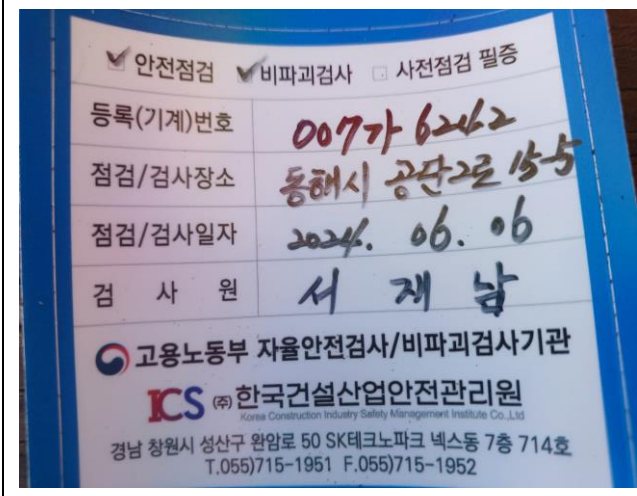 안전점검 비파괴검사 사전점검 필증
등록(기계)번호 007가 6242
점검/검사장소 동해시 공단2로 15-5
점검/검사일자 2024. 06. 06
검 사 원 서 재 남
고용노동부 자율안전검사/비파괴검사기관
ICS (주)한국건설산업안전관리원
Korea Construction Industry Safety Management Institute Co.,Ltd
경남 창원시 성산구 완암로 50 SK테크노파크 넥스동 7층 714호
T.055)715-1951 F.055)715-1952